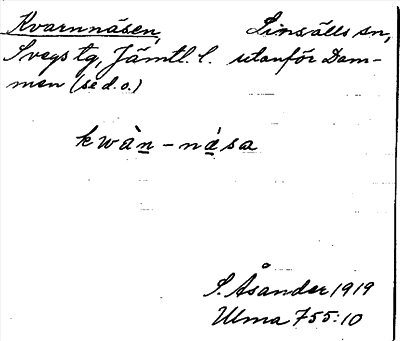 Kvarnnäsen, Linsälls sn,
Svegs tg, Jämtl. l. utanför Dam-
men (se d.o.)
kwàn-nása
S. Åsander 1919
Ulma 755:10